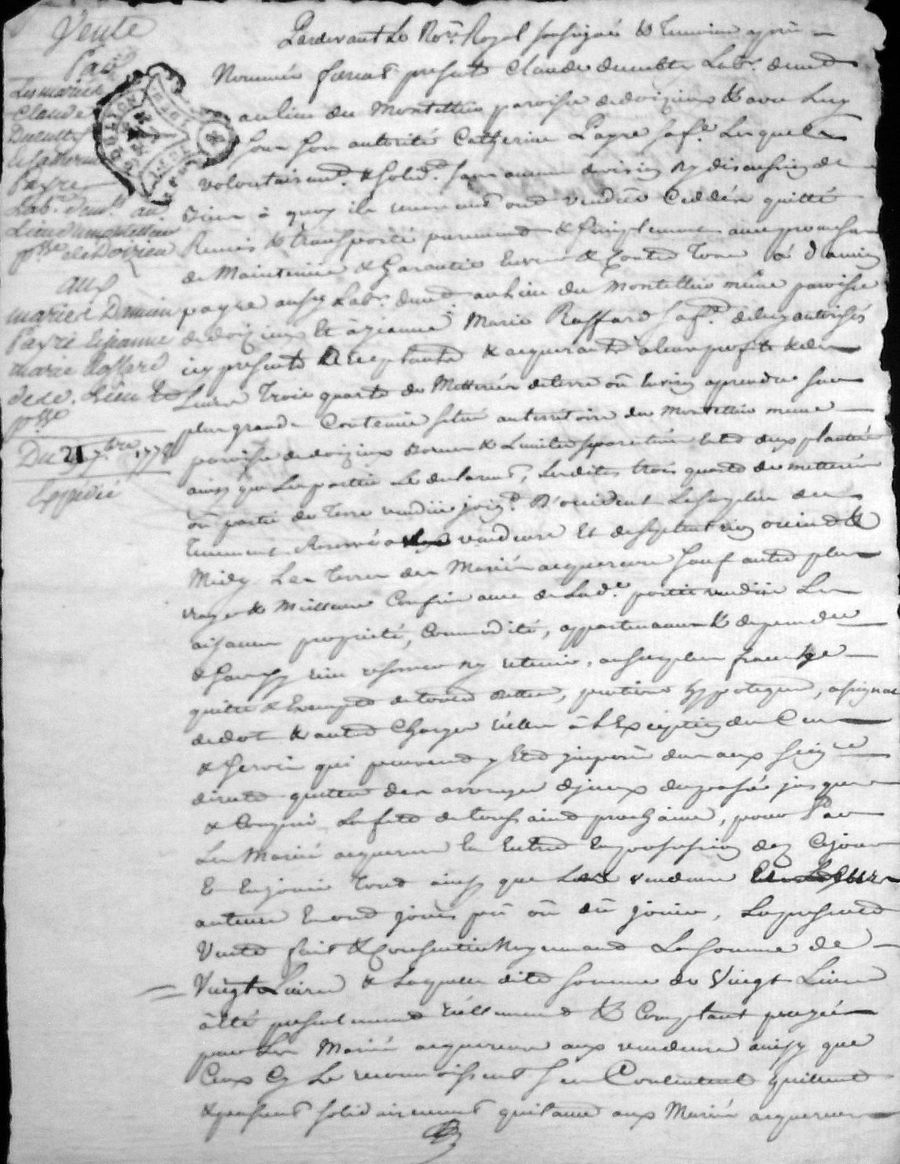 Vente
Par
Les mariés
Claude
Duculty
Catherine
Payre
Lab.r dem.t au
Lieu du montellier
p.sse de Doizieu
aux
mariés Damien
Payre & jeanne
marie Raffard
de ce. Lieu &
p.sse
Du 21 7.bre 1778
Expedié
Pardevant Le No.re Royal soussigné & Temoins après
Nommés furent present Claude Lab.r dem.t
au lieu du Montellier paroisse de doizieux & avec luy
sous son autorité Catherine Payre sa f.e Lesquels
volontairem.t & solid.t sans aucune division ny discussion de
à quoy ils renoncent ont vendu Cedé quitté
Remis & transporté purement & simplement avec promesse
de Maintenir & Garantir Envers & Contre Tous à Damien
payre aussy Lab.r dem.t au lieu du Montellier même paroisse
de doizieux Et à jeanne Marie Raffard sa f.e de luy autorisée
icy presents acceptants & acquerants à leur profit &
trois quarts de Metterée de terre ou environ a prendre sur
plus grande Contenue située au territoire du Montellier meme
paroisse de doizieux & Limites separation
ainsy que Les parties Le declarent, Lesdites trois quarts de metterée
ou partie de Terre vendue joig.t D'occident Le surplus du
tenement Reservé vendeurs Et de septentrion orient &
Midy Les Terres des Mariés acquereurs sauf autres plus
vrays & Meilleurs Confins avec de Lad.e partie vendue Les
aisances proprieté, Commodité, appartenances & dependances
rien reserver ny retenir, au surplus franche
quitte & Exempte de toutes dettes, pentions hyppoteques,
de dot & autres Charges réelles à L'Exception des Cens
& Servis qui peuvent y Etre imposés deus aux Seig.rs
directs quittes des arrerages d'iceux du passé jusques
& Compris La fete de toussaint prochaine, pour Par
Les Mariés acquereurs En Entrer En possession dez Cejourd
& En jouir tout ainsy que Les vendeurs
auteurs En ont joüis pû ou dû joüir, La presente
Vente fait & Consentie Moyennant La somme de
Vingt Livres & Laquelle dite somme de Vingt Livres
à Eté presentement réellement & Comptant payée
par Les Mariés acquereurs aux vendeurs ainsy que
Ceux Cy Le reconnoissent s'en Contentent quittent
& passent solidairement quitance aux Mariés acquereurs